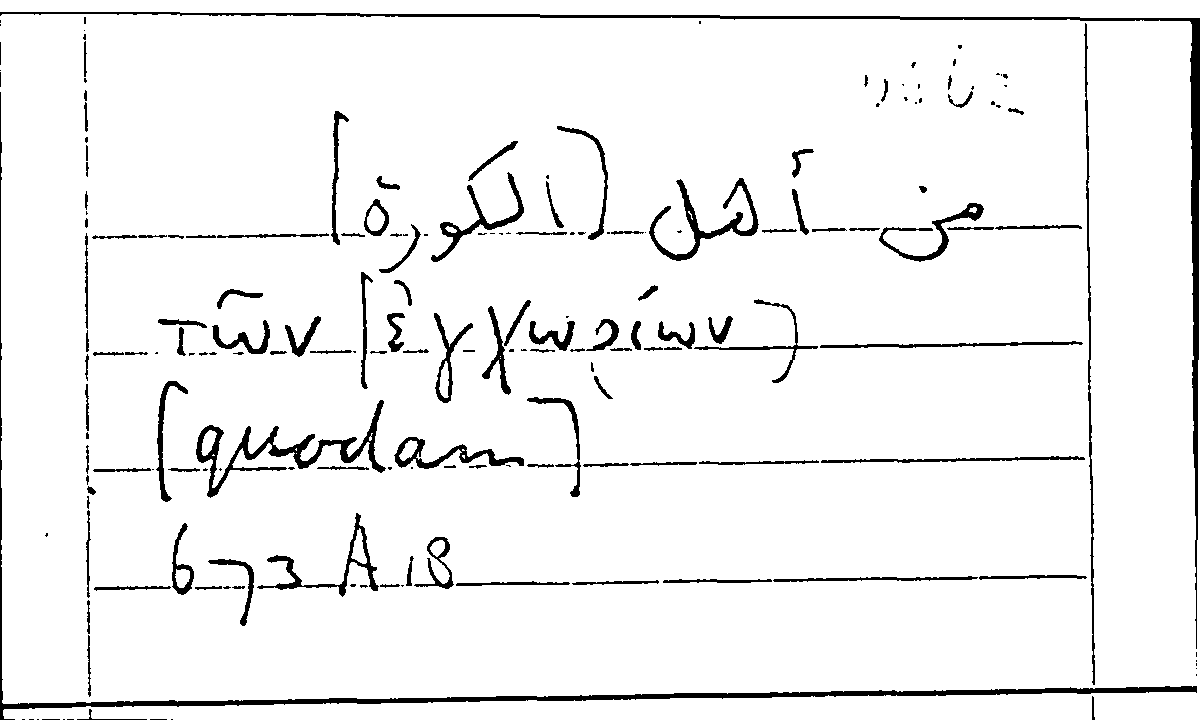 من أهل [الكورة]
τῶν [ἐγχωρίων]
[quodam]
673 A 18